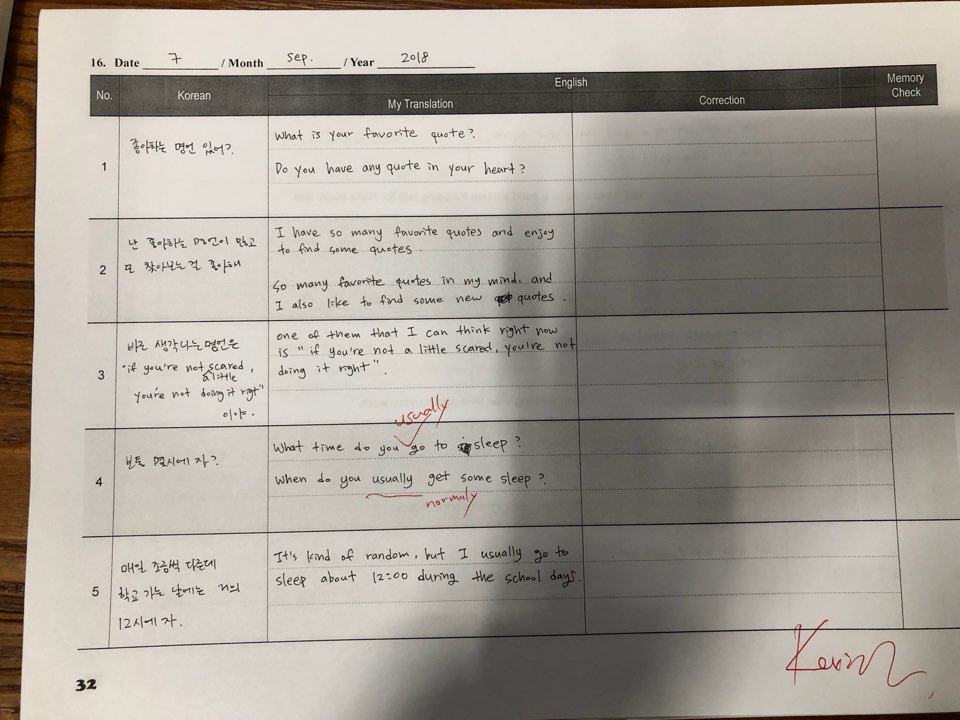 16. Date 7 / Month Sep. / Year 2018
No.
Korean
English
My Translation
Correction
Memory
Check
1
좋아하는 명언 있어?
What is your favorite quote?
Do you have any quote in your heart?
2
난 좋아하는 명언이 많고
또 찾아보는 걸 좋아해
I have so many favorite quotes and enjoy
to find some quotes
So many favorite quotes in my mind, and
I also like to find some new quotes.
3
바로 생각나는 명언은
"if you're not a little scared,
you're not doing it right"
이야.
one of them that I can think right now
is "if you're not a little scared, you're not
doing it right".
4
보통 몇시에 자?
usually
What time do you go to sleep?
When do you usually get some sleep?
normaly
5
매일 조금씩 다른데
학교 가는 날에는 거의
12시에 자.
It's kind of random, but I usually go to
sleep about 12:00 during the school days.
Kevin
32